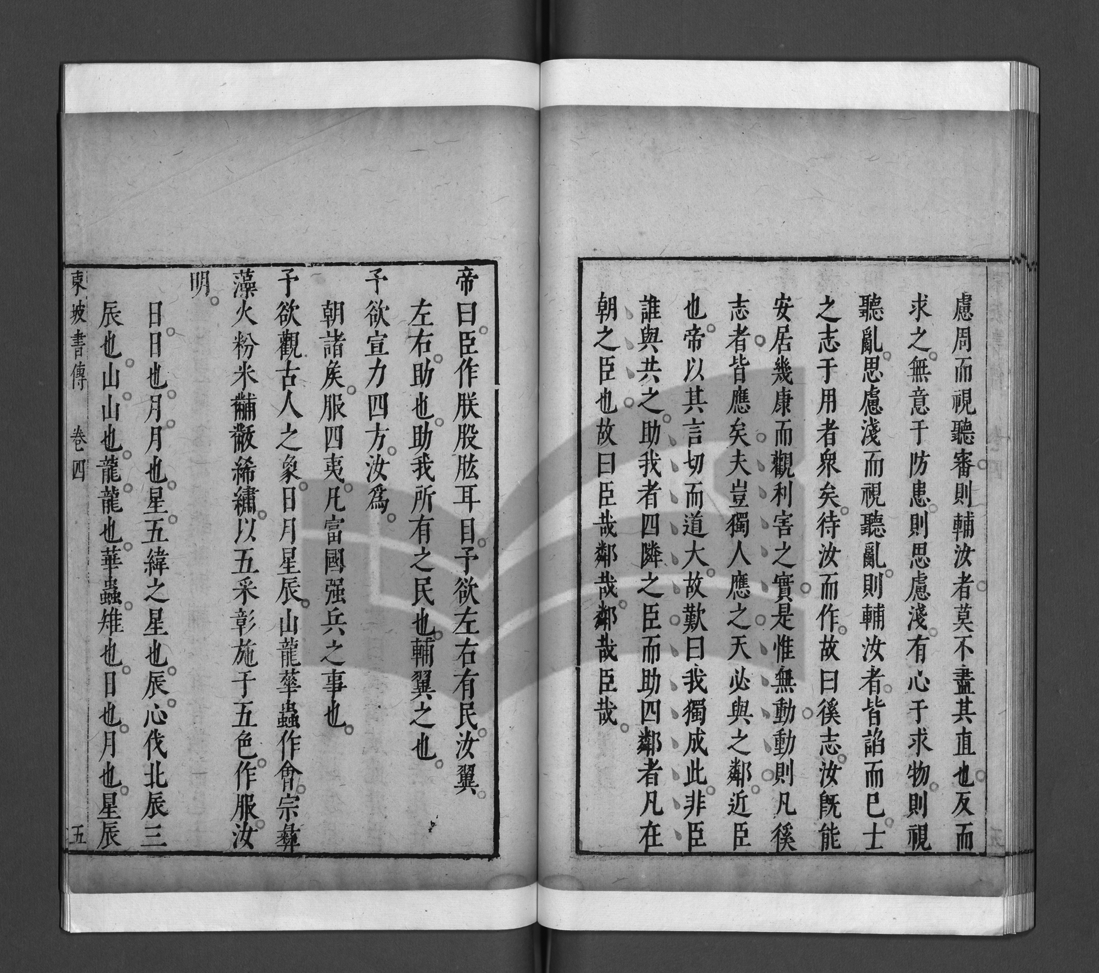 慮周而視聽審則輔汝者莫不盡其直也反而
求之無意于防患則思慮淺有心于求物則視
聽亂思慮淺而視聽亂則輔汝者皆諂而已士
之志于用者衆矣待汝而作故曰徯志汝旣能
安居幾康而觀利害之實是惟無動動則凡徯
志者皆應矣夫豈獨人應之天必與之鄰近臣
也帝以其言切而道大故歎曰我獨成此非臣
誰與共之助我者四隣之臣而助四鄰者凡在
朝之臣也故曰臣哉鄰哉鄰哉臣哉
帝曰臣作朕股肱耳目予欲左右有民汝翼
左右助也助我所有之民也輔翼之也
予欲宣力四方汝爲
朝諸矦服四夷凡富國强兵之事也
予欲觀古人之象日月星辰山龍華蟲作會宗彝
藻火粉米黼黻絺繡以五采彰施于五色作服汝
明
日日也月月也星五緯之星也辰心伐北辰三
辰也山山也龍龍也華蟲雉也日也月也星辰
東坡書傳 卷四 五